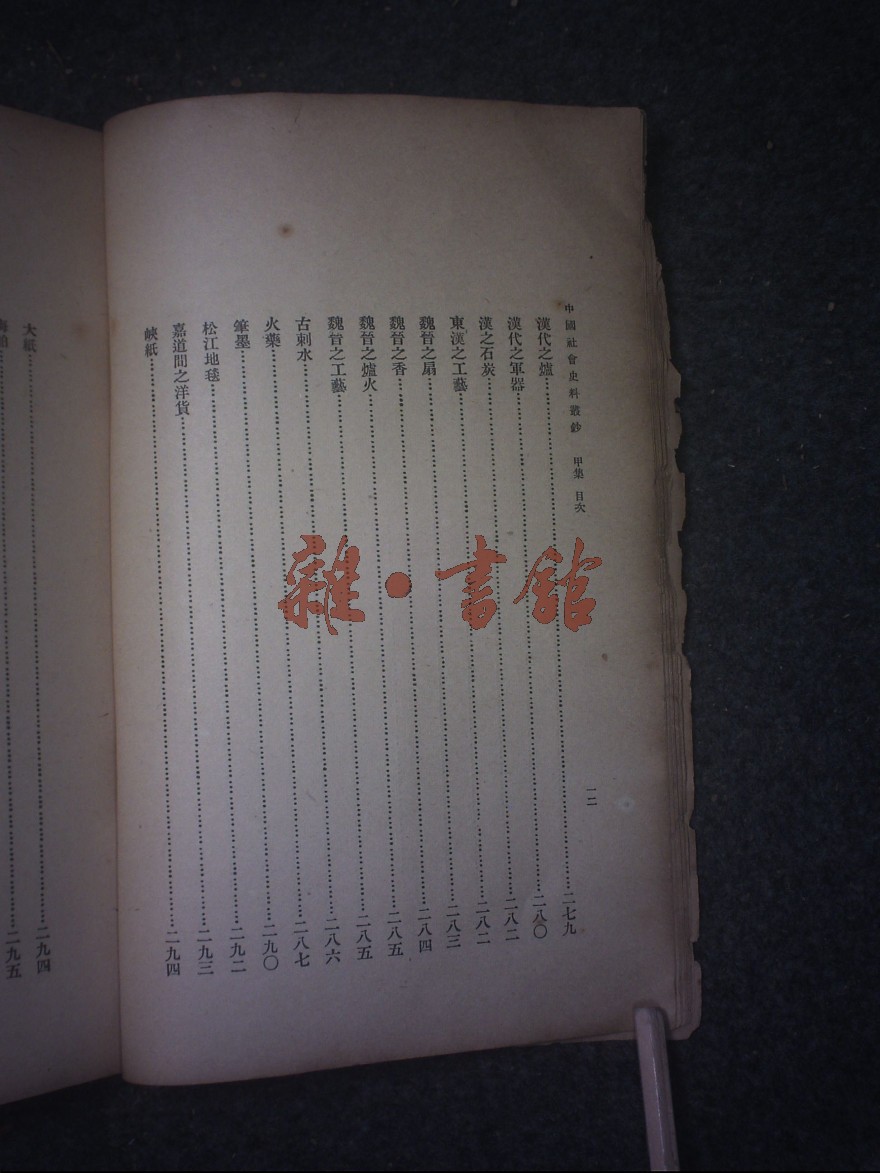 中國社會史料叢鈔 甲集 目次
一二
漢代之爐……二七九
漢代之軍器……二八〇
漢之石炭……二八二
東漢之工藝……二八二
魏晉之扇……二八三
魏晉之香……二八四
魏晉之爐火……二八五
魏晉之工藝……二八五
古刺水……二八六
火藥……二八七
筆墨……二九〇
松江地毯……二九二
嘉道間之洋貨……二九三
峽紙……二九四
大紙……二九四
二九五
雜·書館